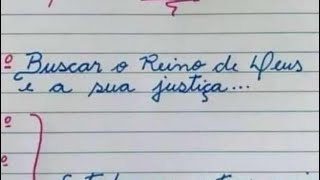 º Buscar o Reino de Deus
e a sua justiça...
º
º